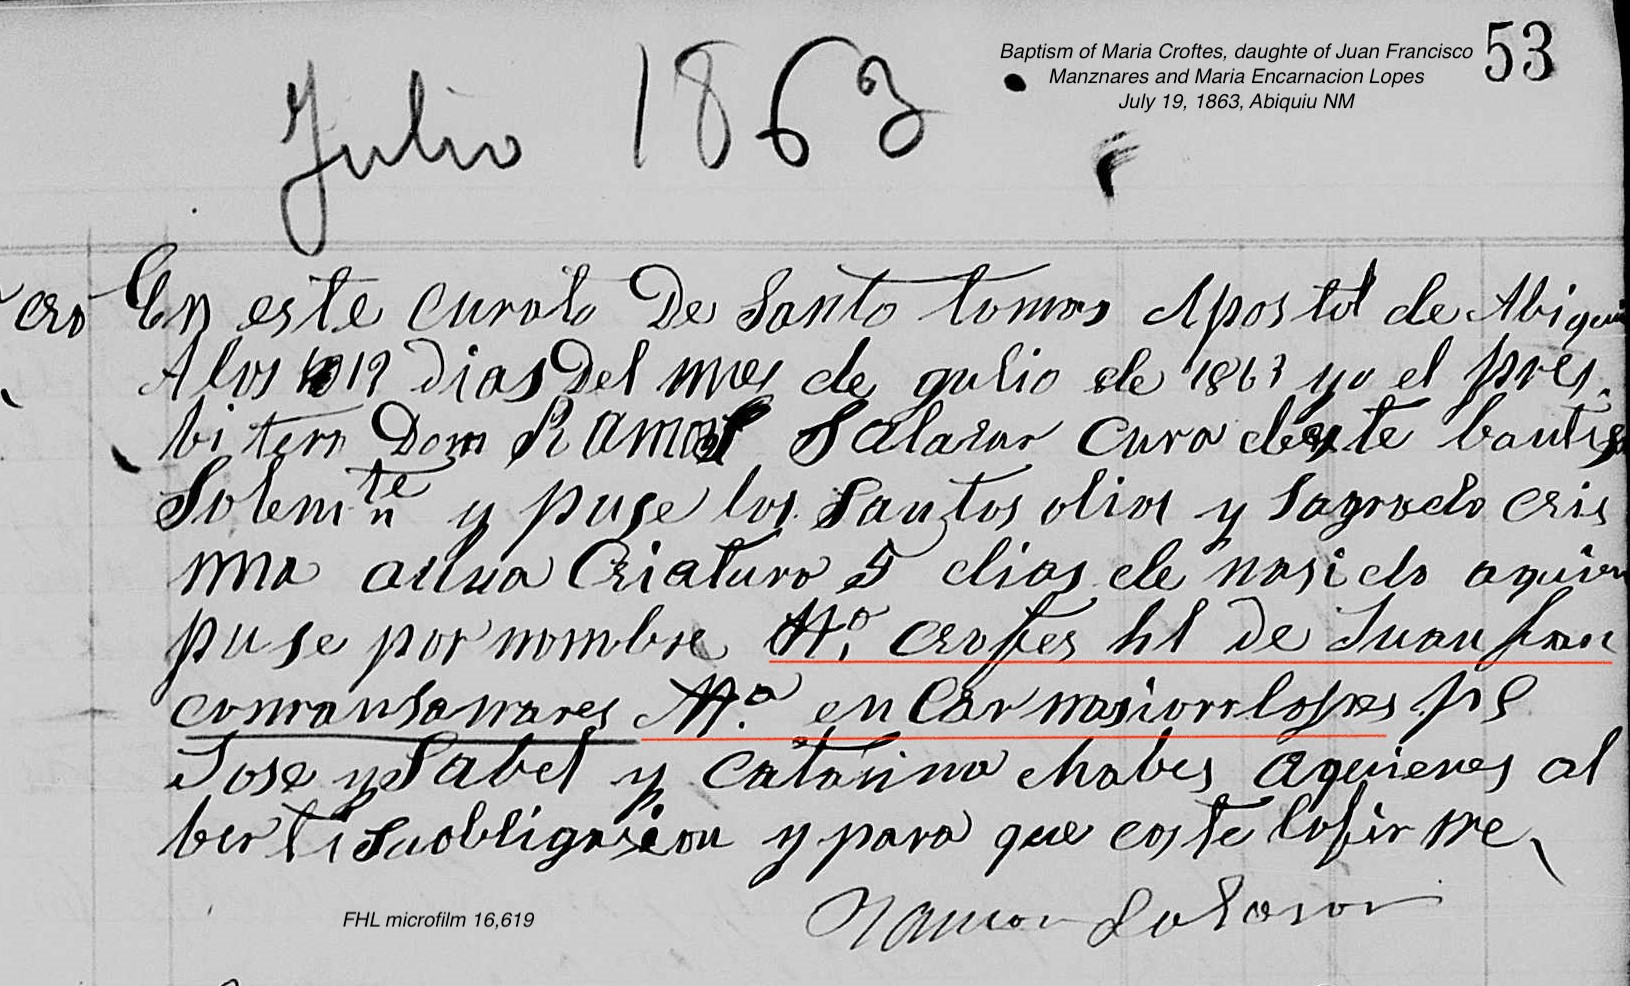 53
Baptism of Maria Croftes, daughte of Juan Francisco
Manznares and Maria Encarnacion Lopes
July 19, 1863, Abiquiu NM
Julio 1863
cro
En este curato De Santo tomas Apostol de Abiqui
A los 19 dias Del mes de gulio de 1863 yo el pres.
bitero Dom Ramon Salasar Cura deste bautis
Solemnte y puse los Santos olios y Sagrado cris
ma auna Criatura 5 dias de nasido aquien
puse por nombre Ma. croftes hl de Juan fran
comansanares Ma. en Carnasion lopes ps
Jose ysabel y catarina chabes aquienes al
berti Suobligasion y para que coste lofirme
Ramon Salasar
FHL microfilm 16,619